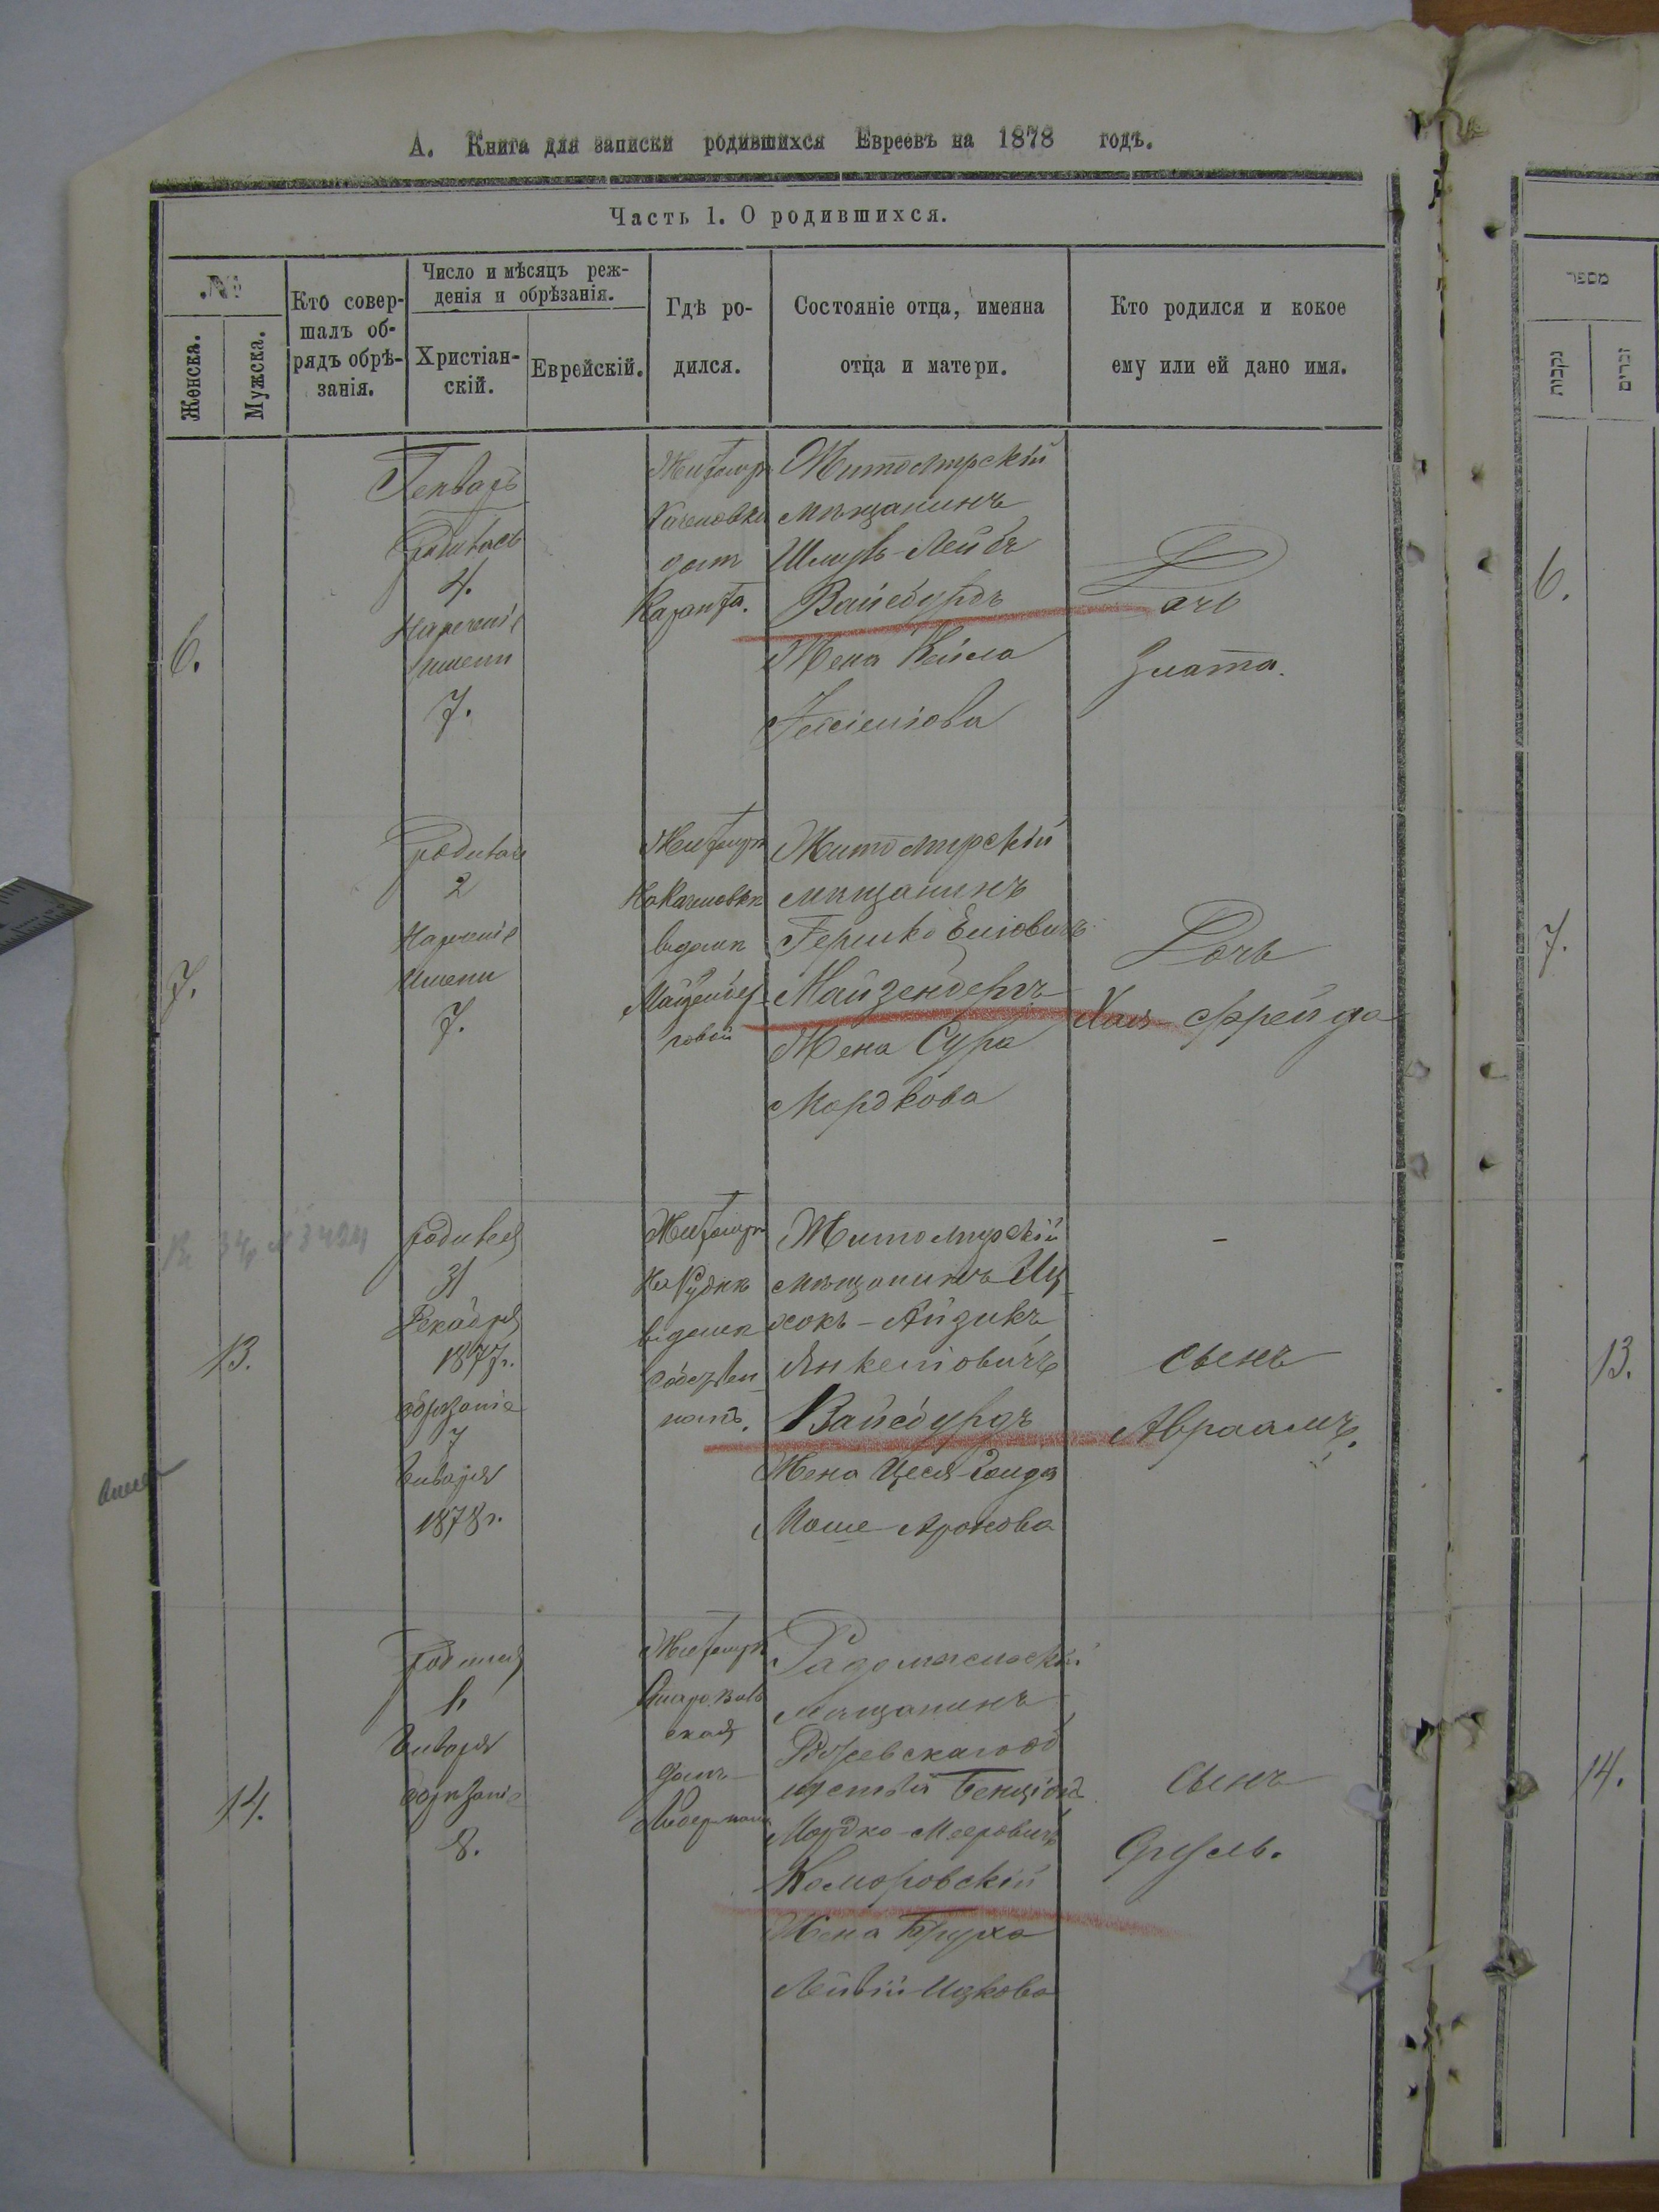 А. Книга для записки родившихся Евреевъ на 1878 годъ.
Часть 1. О родившихся.
№
Женска.
Мужска.
Кто совер-
шалъ об-
рядъ обрѣ-
занія.
Число и мѣсяцъ реж-
денія и обрѣзанія.
Христіан-
скій.
Еврейскій.
Гдѣ ро-
дился.
Состояніе отца, имянна
отца и матери.
Кто родился и кокое
ему или ей дано имя.
6.
Генварь
родилась
4.
Нареченіе
имени
7.
Житомиръ
домъ
Житомирскій
мѣщанинъ
Лейбъ
Вайсбурдъ
Жена Кейла
Дочь
Злата.
7.
родилась
2
Нареченіе
Имени
7.
Житомиръ
На
въ домѣ
Майзенбер-
говой
Житомирскій
мѣщанинъ
Гершко
Майзенбергъ
Жена Сура
Мордкова
Дочь
Хая Фрейда
13.
родился
31
Декабря
1877г.
обрѣзаніе
7
Января
1878г.
Житомиръ
На Рудкѣ
въ домѣ
собствен-
номъ.
Житомирскій
мѣщанинъ Иц
хокъ-Айзикъ
Янкелiовичъ
Вайсбурдъ
Жена
Моше-Аронова
-
сынъ
Авраамъ.
14.
родился
1.
Января
обрѣзаніе
8.
Житомиръ
ская
домъ
Либермана
Радомысльскій
мѣщанинъ
об
щества Бенціонъ
Мордко-Мееровичъ
Коморовскій
Жена Бруха
Ицкова
сынъ
Сруль.
מספר
נקבות
זכרים
6.
7.
13.
14.